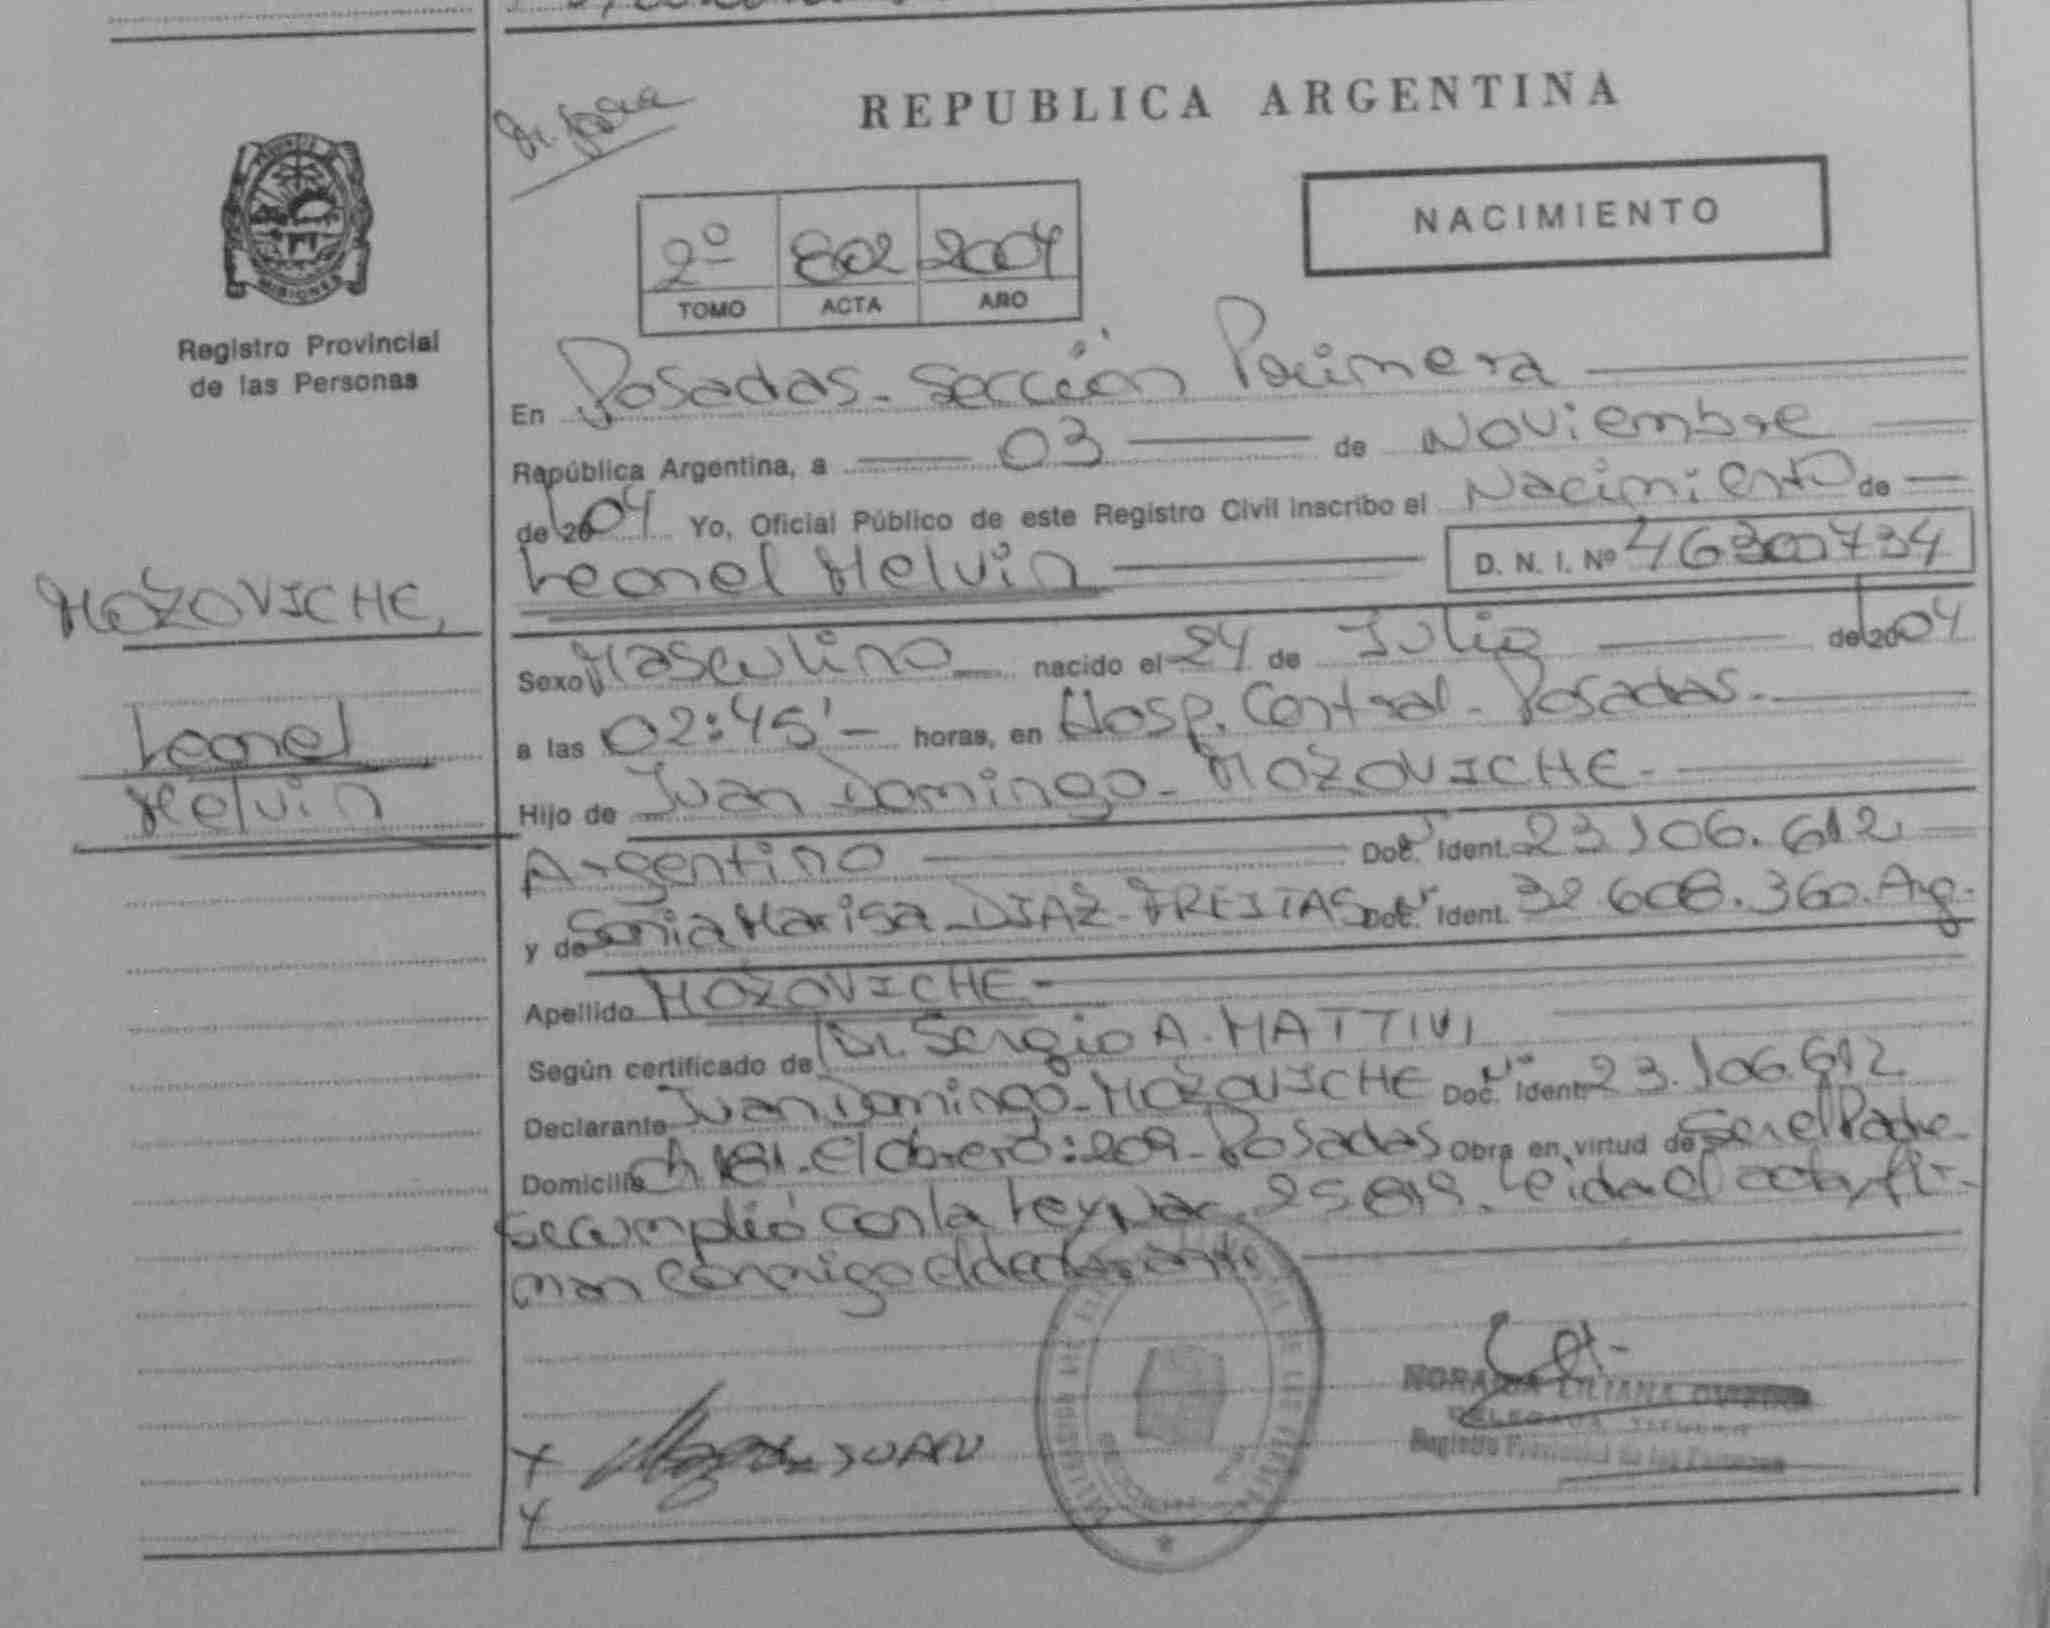 REPUBLICA ARGENTINA
NACIMIENTO
2º 802 2004
TOMO ACTA AÑO
MISIONES
Registro Provincial
de las Personas
En Posadas - Sección Primera
República Argentina, a 03 de Noviembre
de 2004 Yo, Oficial Público de este Registro Civil inscribo el Nacimiento de
Leonel Melvin D. N. I. Nº 46300734
MOZOVICHE,
Leonel
Melvin
Sexo Masculino nacido el 24 de Julio de 2004
a las 02:45'- horas, en Hosp. Central - Posadas.
Hijo de Juan Domingo - MOZOVICHE -
Argentino Doc. Ident. 23.106.612
y de Sonia Marisa - DIAZ - FREITAS Doc. Ident. 32.608.360. Arg.
Apellido MOZOVICHE -
Según certificado de Dr. Sergio A. MATTIVI
Declarante Juan Domingo - MOZOVICHE Doc. Ident. 23.106.612
Domicilio Ch 181. El Obrero: 209 - Posadas Obra en virtud de Ser el Padre
Se cumplió con la Ley Nac. 25819. Leida el acta, fir-
man conmigo el declarante
JUAN
LILIANA
Registro Provincial de las Personas